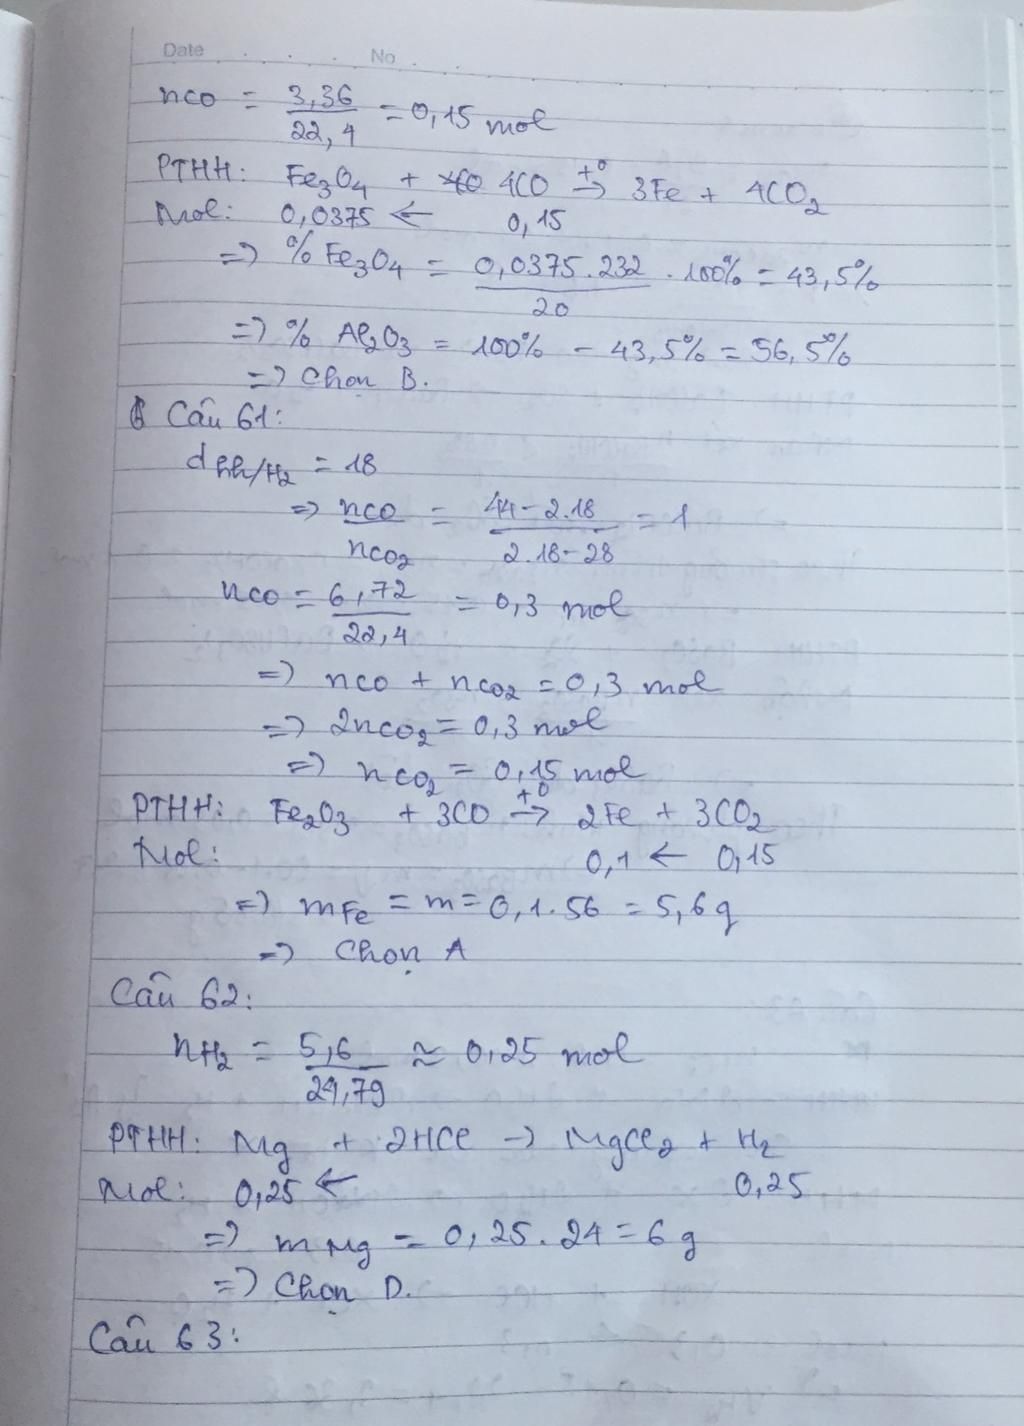 Date No
nco = 3,36 / 22,4 = 0,15 mol
PTHH: Fe3O4 + 4CO t° → 3Fe + 4CO2
Mol: 0,0375 ← 0,15
=> % Fe3O4 = 0,0375.232 / 20 . 100% = 43,5%
=> % Al2O3 = 100% - 43,5% = 56,5%
=> Chọn B.
Câu 61:
d hh/H2 = 18
=> nco / nco2 = 44-2.18 / 2.18-28 = 1
nco = 6,72 / 22,4 = 0,3 mol
=> nco + nco2 = 0,3 mol
=> 2nco2 = 0,3 mol
=> nco2 = 0,15 mol
PTHH: Fe2O3 + 3CO t° → 2Fe + 3CO2
Mol: 0,1 ← 0,15
=> mFe = m = 0,1.56 = 5,6g
=> Chọn A
Câu 62:
nH2 = 5,6 / 24,79 ≈ 0,25 mol
PTHH: Mg + 2HCl → MgCl2 + H2
Mol: 0,25 ← 0,25
=> mMg = 0,25.24 = 6g
=> Chọn D.
Câu 63: